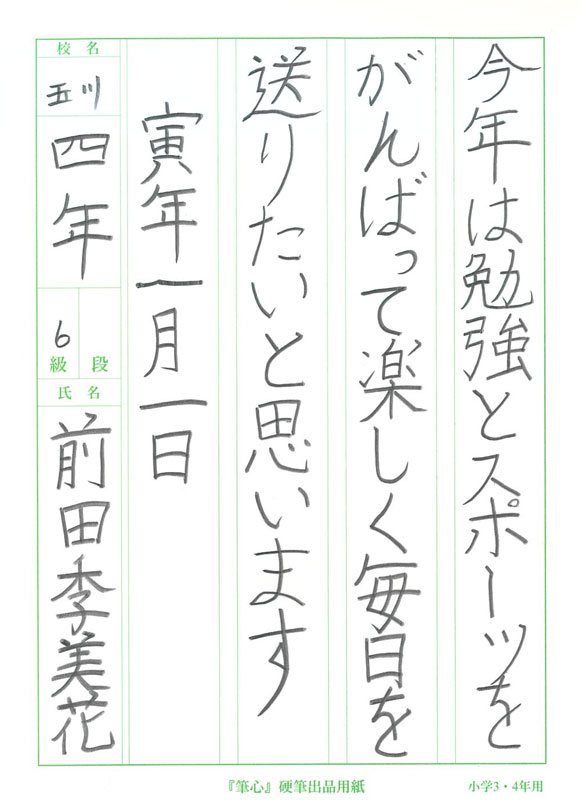 今年は勉強とスポーツを
がんばって楽しく毎日を
送りたいと思います
寅年一月一日
校名
五川
四年
段
6級
氏名
前田李美花
『筆心』硬筆出品用紙
小学3・4年用